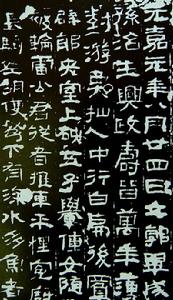 元嘉元年八月廿四日立郭畢成
孫治生興政壽皆萬年薄
游戲仙人中行白虎後鳳
辟邪央室上硤五子轝僮女隨
被輪雷公君從者推車平梩冤廚
長騎左胡使弩下有深水多魚者